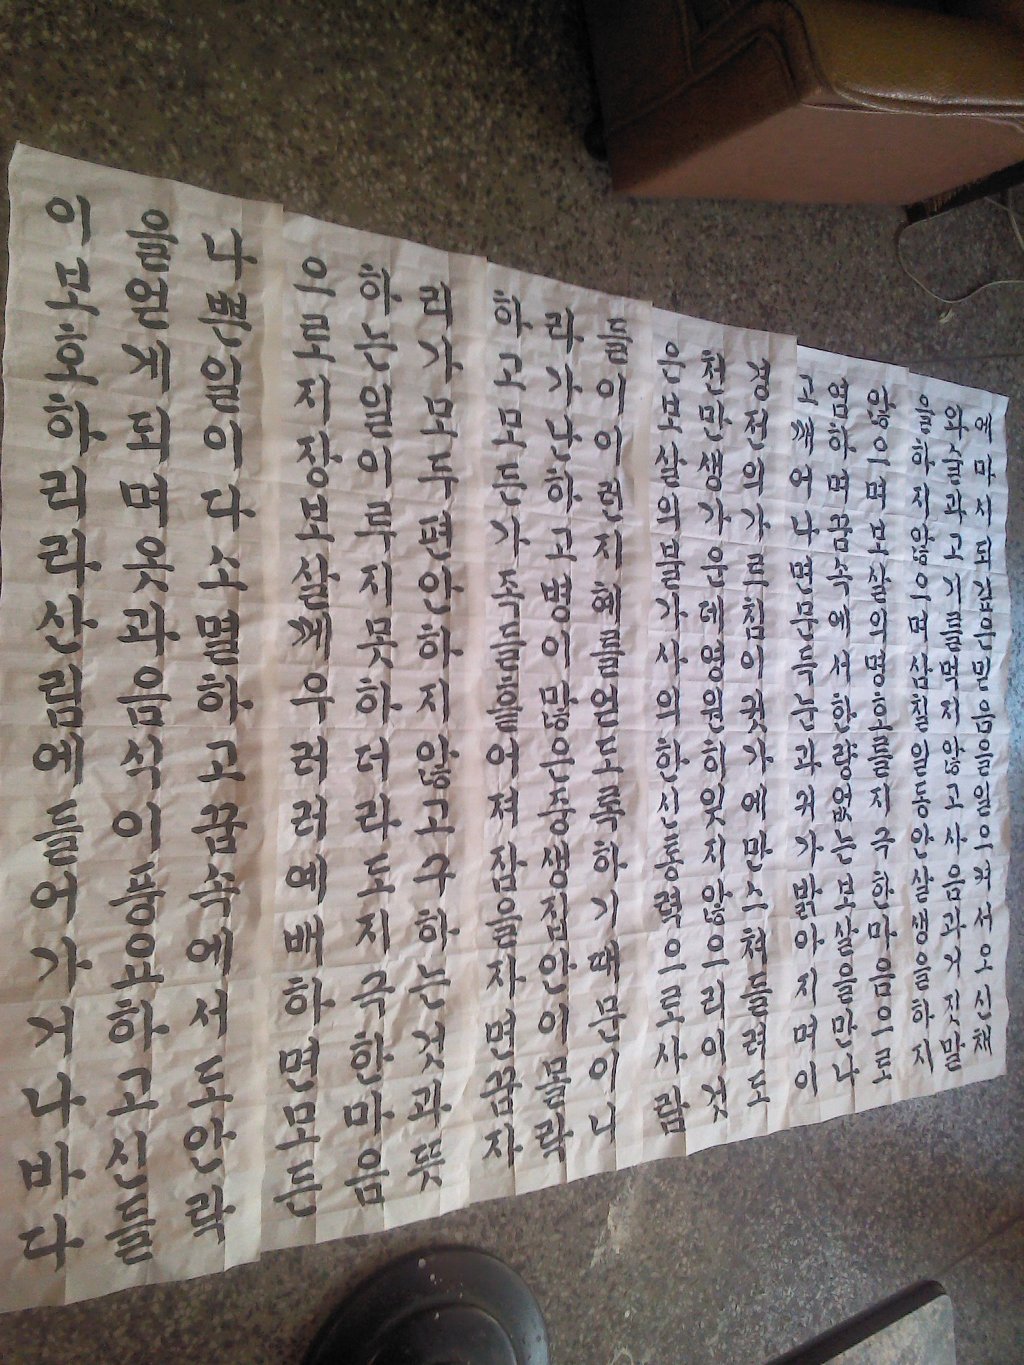 에마시되갑은믿음을일으켜서오신채
와술과고기를먹지않고사음과거짓말
을하지않으며삼칠일동안살생을하지
않으며보살의명호를지극한마음으로
염하며꿈속에서한량없는보살을만나
고깨어나면문득눈과귀가밝아지며이
경전의가르침이귓가에만스쳐들려도
천만생가운데영원히잊지않으리이것
은보살의불가사의한신통력으로사람
들이이런지혜를얻도록하기때문이니
라가난하고병이많은중생집안이몰락
하고모든가족들흩어져잠을자면꿈자
리가모두편안하지않고구하는것과뜻
하는일이루지못하더라도지극한마음
으로지장보살께우러러예배하면모든
나쁜일이다소멸하고꿈속에서도안락
음얻게되며옷과음식이풍요하고신들
이보호하리라산림에들어가거나바다